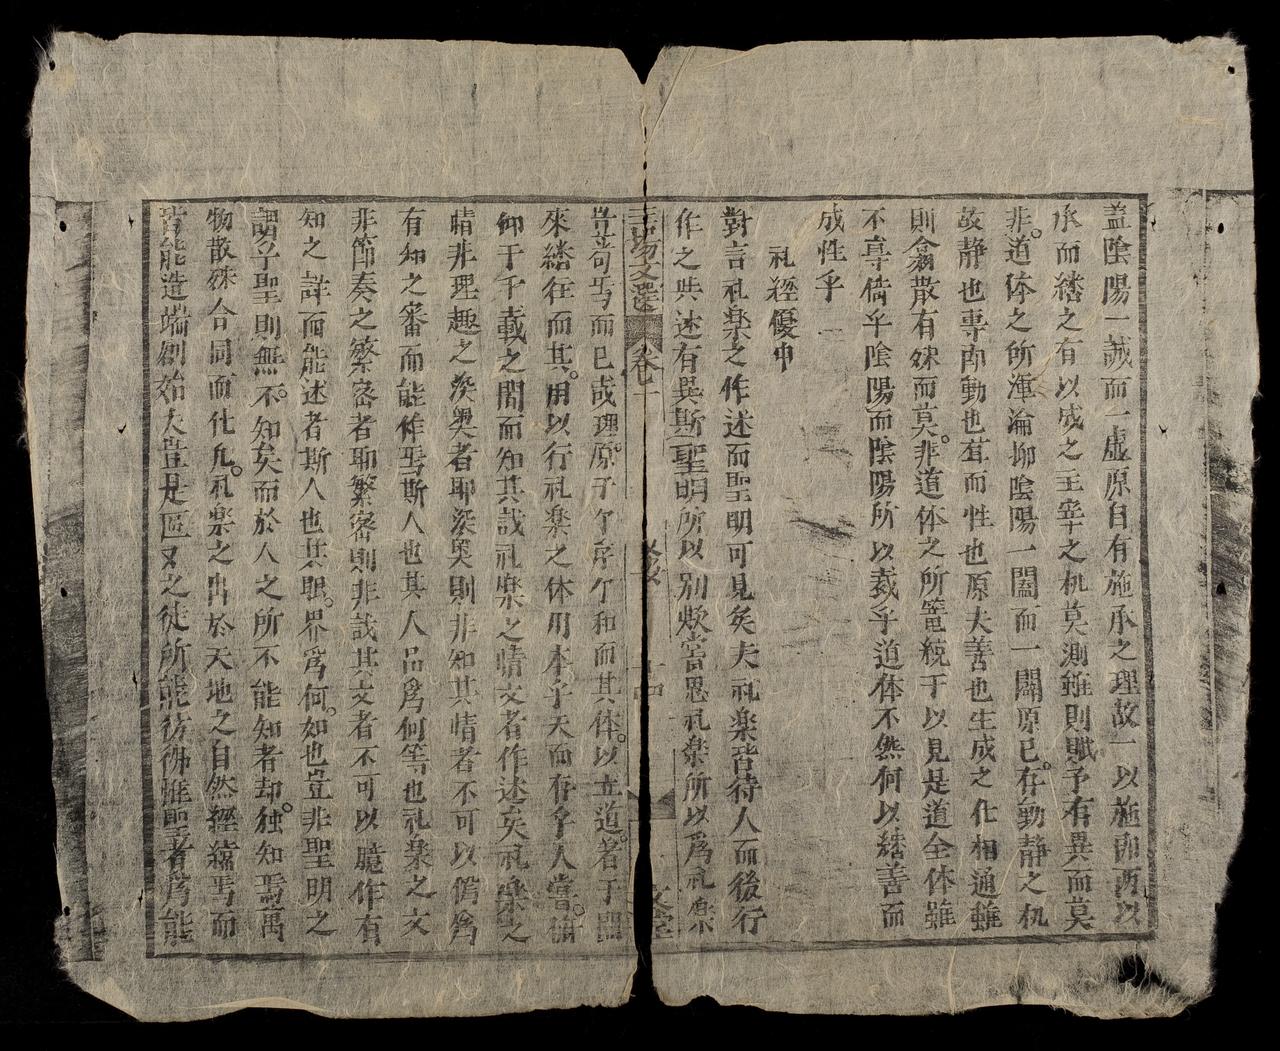 盖陰陽一誠而一虛原自有施承之理故一以施而两以
承而繕之有以成之主宰之机莫測雖則賦予有異而莫
非道体之所渾淪抑陰陽一闔而一闢原已存動静之机
故静也専而動也 而性也原夫善也生成之化相通雖
則翕散有妹而莫非道体之所篭統于以見是道全体雖
不専倚乎陰陽而陰陽所以裁乎道体不然何以繕善而
成性乎
礼經優中
對言礼楽之作述而聖明可見矣夫礼楽皆待人而後行
作之與述有異斯聖明所以别歟嘗思礼楽所以為礼楽
文選 卷十
十四
文堂
豈苟焉而已哉理原于个序个和而其体以立道著于聖
來繕往而其用以行礼楽之体用本乎天而存乎人嘗
仰于千載之間而知其哉礼楽之情文者作述矣礼楽之
情非理趣之深奥者耶深奥則非知其情者不可以 為
有知之審而能作焉斯人也其人品為何等也礼楽之文
非節奏之繁密者耶繁密則非哉其文者不可以臆作有
知之詳而能述者斯人也其 界為何如也豈非聖明之
謂乎聖則無不知矣而於人之所不能知者却独知焉萬
物散殊合同而化凡礼楽之出於天地之自然經 焉而
皆能造端創始夫豈是匹 之徒所能彷彿惟聖者為能